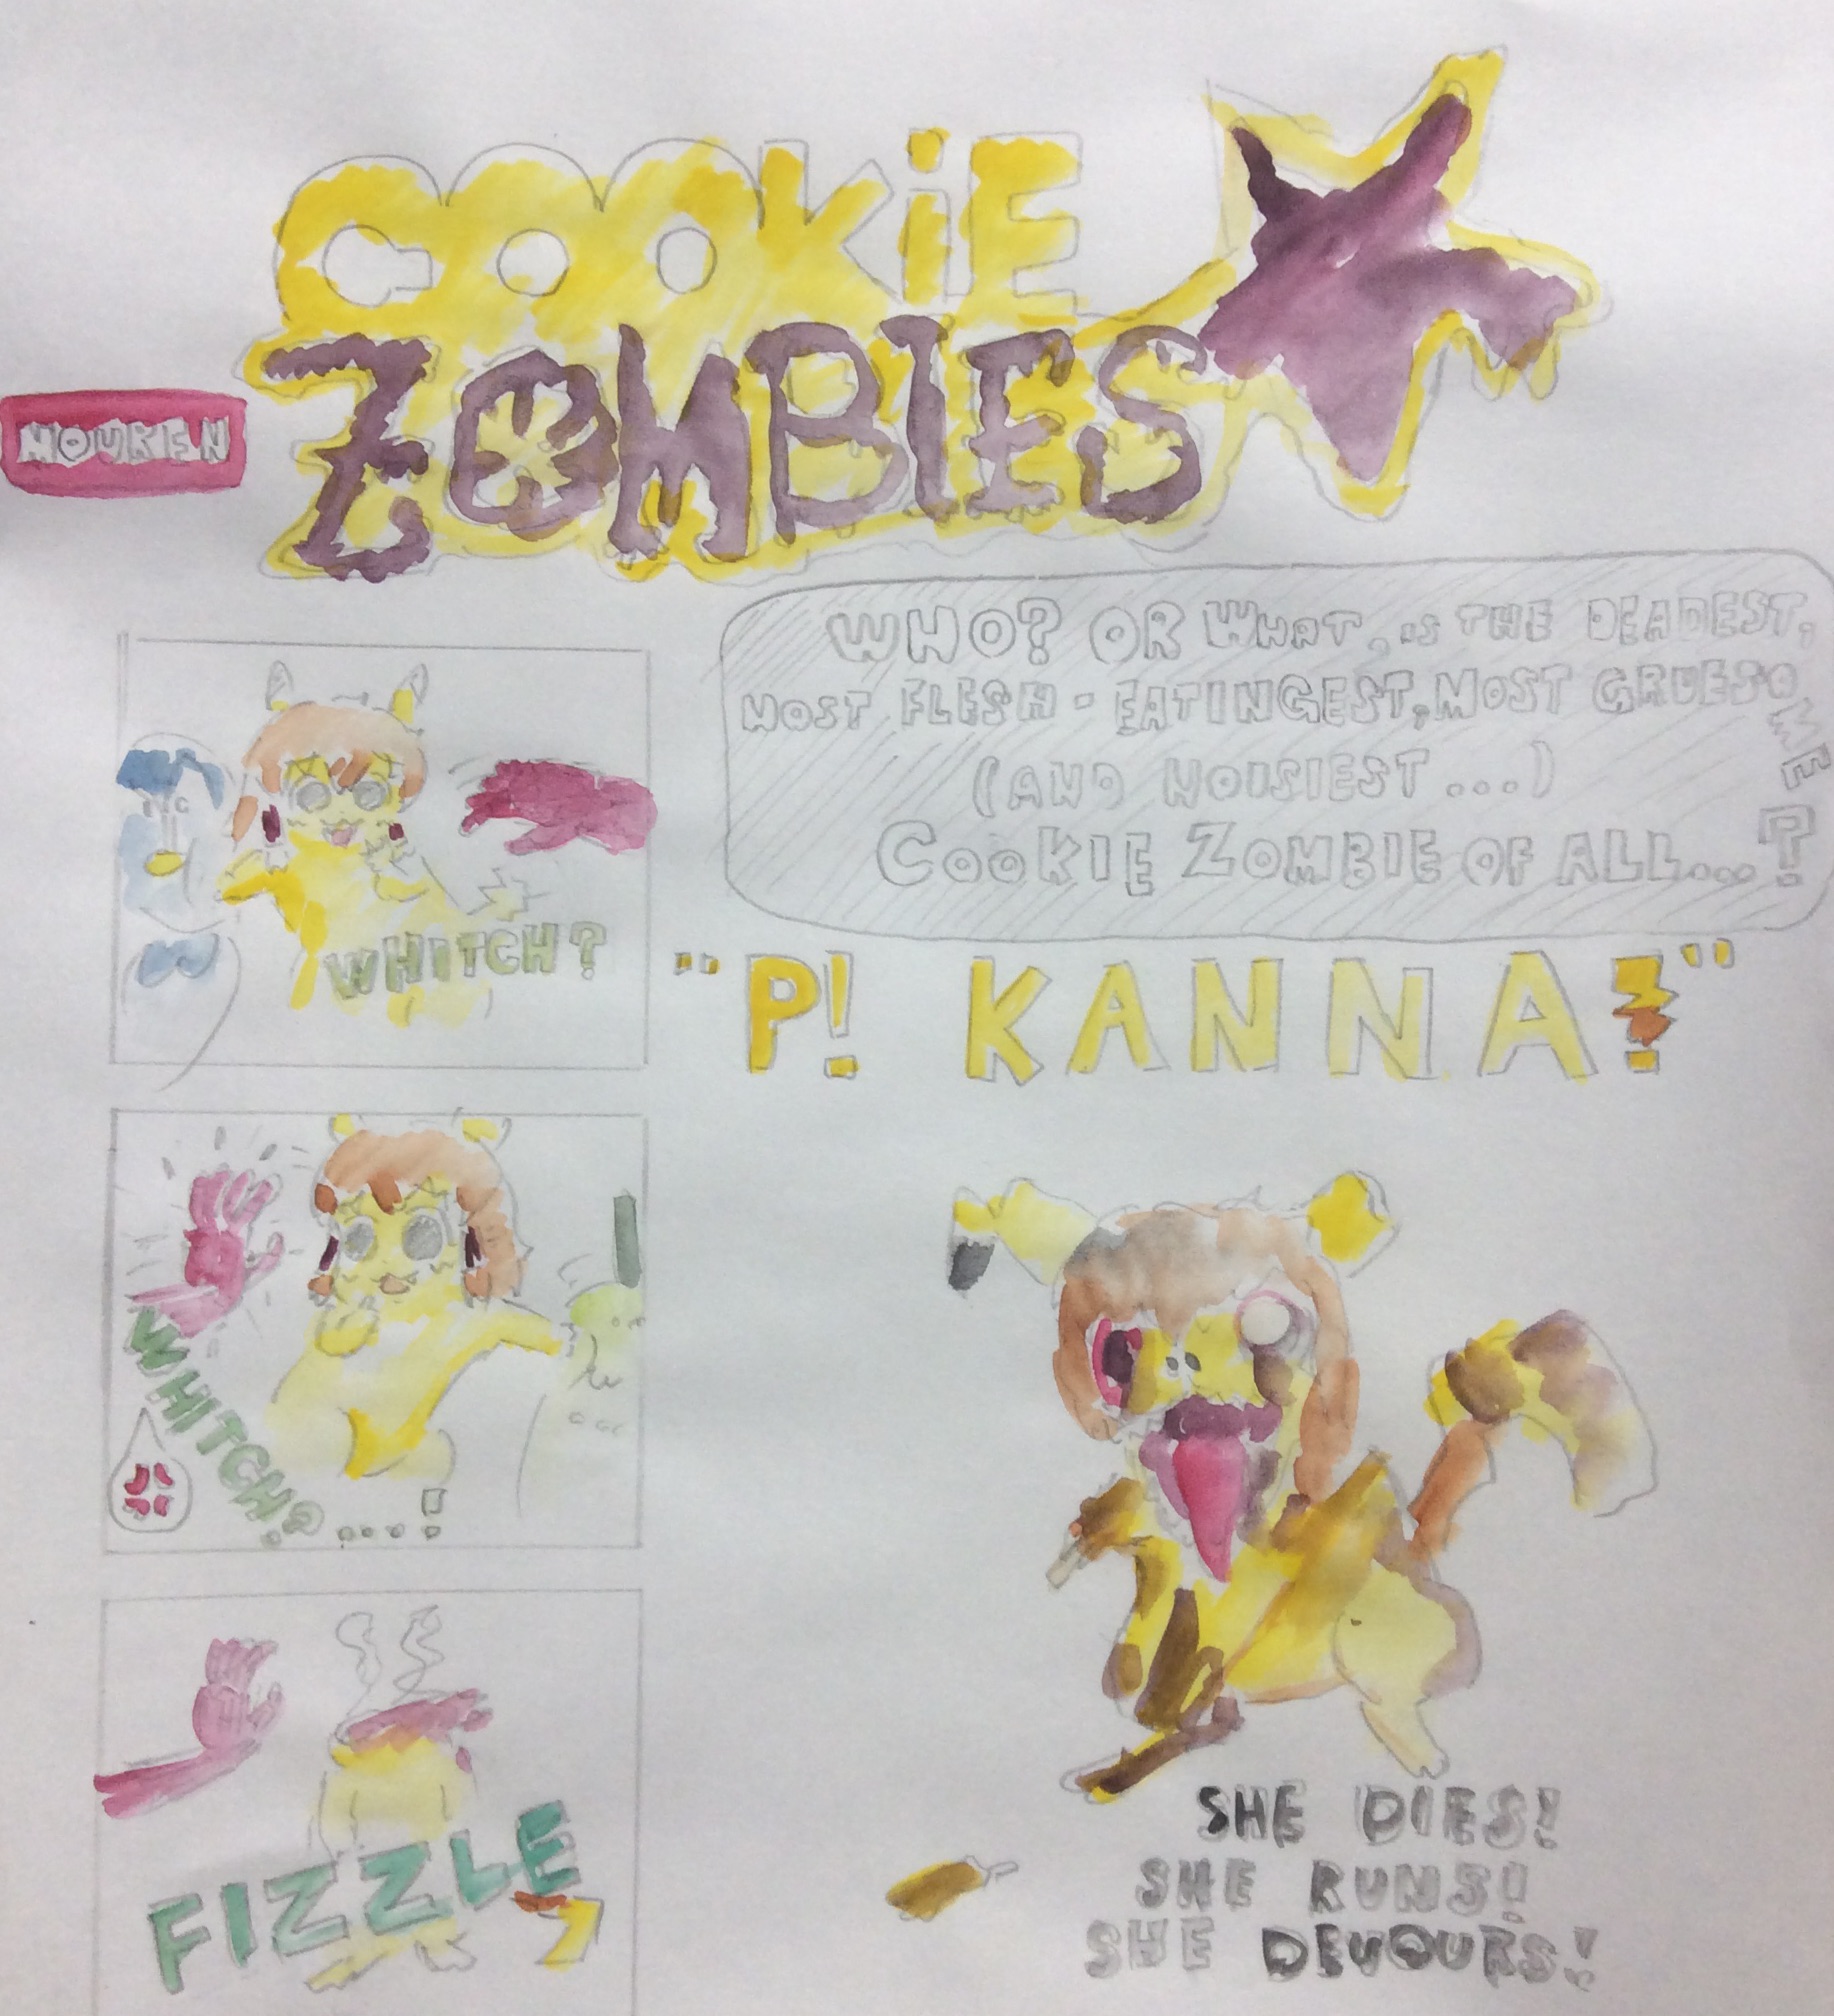 COOKiE
ZOMBIES
MOUKEN
WHO? OR WHAT, iS THE DEADEST,
MOST FLESH-EATINGEST, MOST GRUESOME
(AND NOISIEST...)
COOKIE ZOMBIE OF ALL...?
"P! KANNA!"
WHITCH?
WHITCH?....!
FIZZLE
SHE DIES!
SHE RUNS!
SHE DEVOURS!